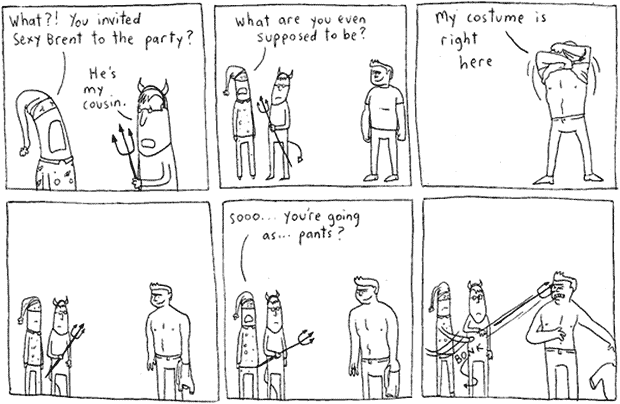 What?! You invited
Sexy Brent to the party?
He's
my
cousin.
What are you even
supposed to be?
My costume is
right
here
sooo... you're going
as... pants?
BONK